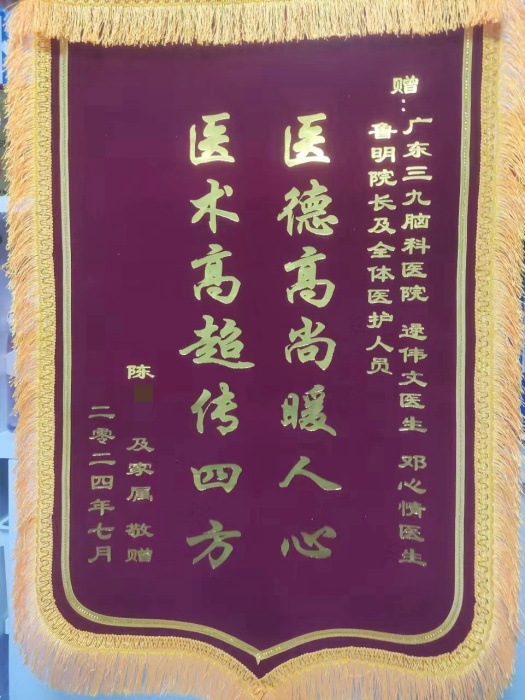 赠：广东三九脑科医院 逯伟文医生 邓心情医生
鲁明院长及全体医护人员
医德高尚暖人心
医术高超传四方
陈
及家属 敬赠
二零二四年七月